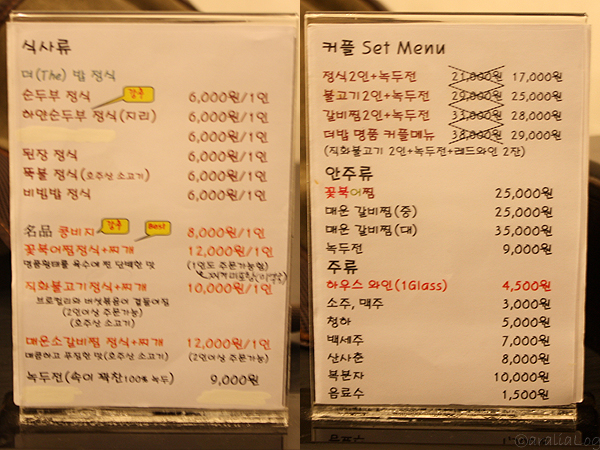 식사류
더(The) 밥 정식
순두부 정식 강추 6,000원/1인
하얀순두부 정식(지리) 6,000원/1인
6,000원/1인
된장 정식 6,000원/1인
뚝불 정식(호주산 소고기) 6,000원/1인
비빔밥 정식 6,000원/1인
名品 콩비지 강추 Best 8,000원/1인
꽃북어찜정식+찌개 12,000원/1인
명품황태를 육수에 찐 담백한 맛 (1인도 주문가능함)
직화불고기정식+찌개 10,000원/1인
브로컬리와 버섯볶음이 곁들여짐
(2인이상 주문가능)
(호주산 소고기)
매운소갈비찜 정식+찌개 12,000원/1인
매콤하고 푸짐한 맛(호주산 소고기) (2인이상 주문가능)
녹두전(속이 꽉찬100% 녹두) 9,000원
커플 Set Menu
정식2인+녹두전 21,000원 17,000원
불고기2인+녹두전 29,000원 25,000원
갈비찜2인+녹두전 33,000원 28,000원
더밥 명품 커플메뉴 38,000원 29,000원
(직화불고기 2인+녹두전+레드와인 2잔)
안주류
꽃북어찜 25,000원
매운 갈비찜(중) 25,000원
매운 갈비찜(대) 35,000원
녹두전 9,000원
주류
하우스 와인(1Glass) 4,500원
소주, 맥주 3,000원
청하 5,000원
백세주 7,000원
산사춘 8,000원
복분자 10,000원
음료수 1,500원
@araliaLog